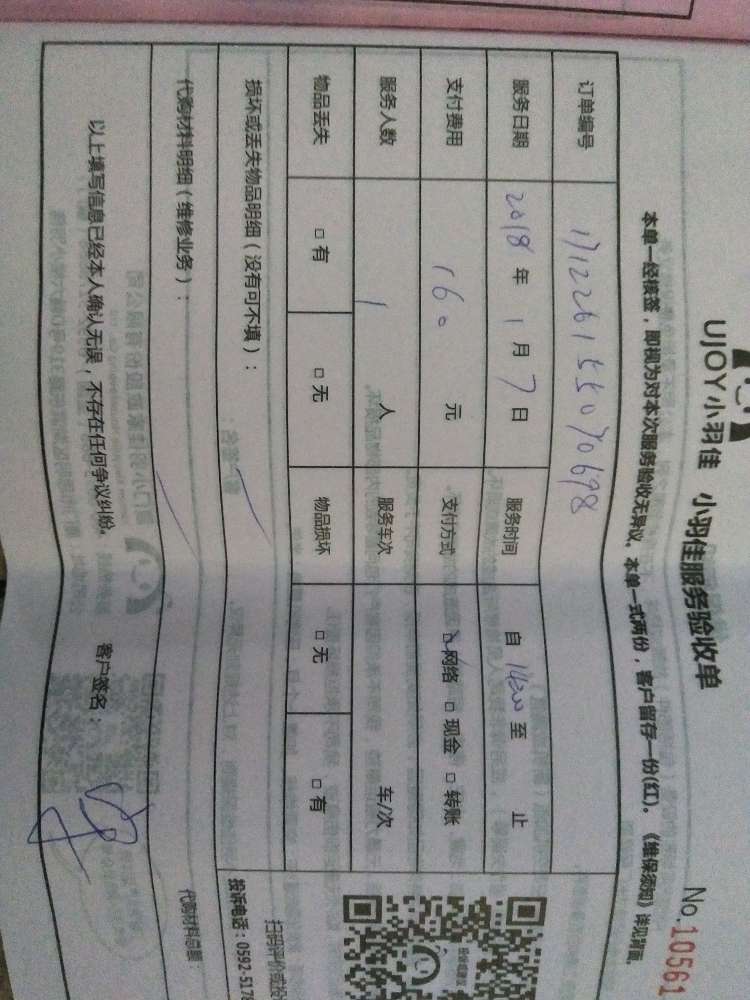 UJOY小羽佳 小羽佳服务验收单
No.10561
本单一经核签，即视为对本次服务验收无异议。本单一式两份，客户留存一份(红)。《维保须知》详见背面。
订单编号 171226155070698
服务日期 2018年1月7日 服务时间 自1400至 止
支付费用 160元 支付方式 ☑网络 □现金 □转账
服务人数 1人 服务车次 车/次
物品丢失 □有 □无 物品损坏 □无 □有
损坏或丢失物品明细（没有可不填）：
代购材料明细（维修业务）： 代购材料总额：
以上填写信息已经本人确认无误，不存在任何争议纠纷。 客户签名：
扫码评价或投
投诉电话：0592-517